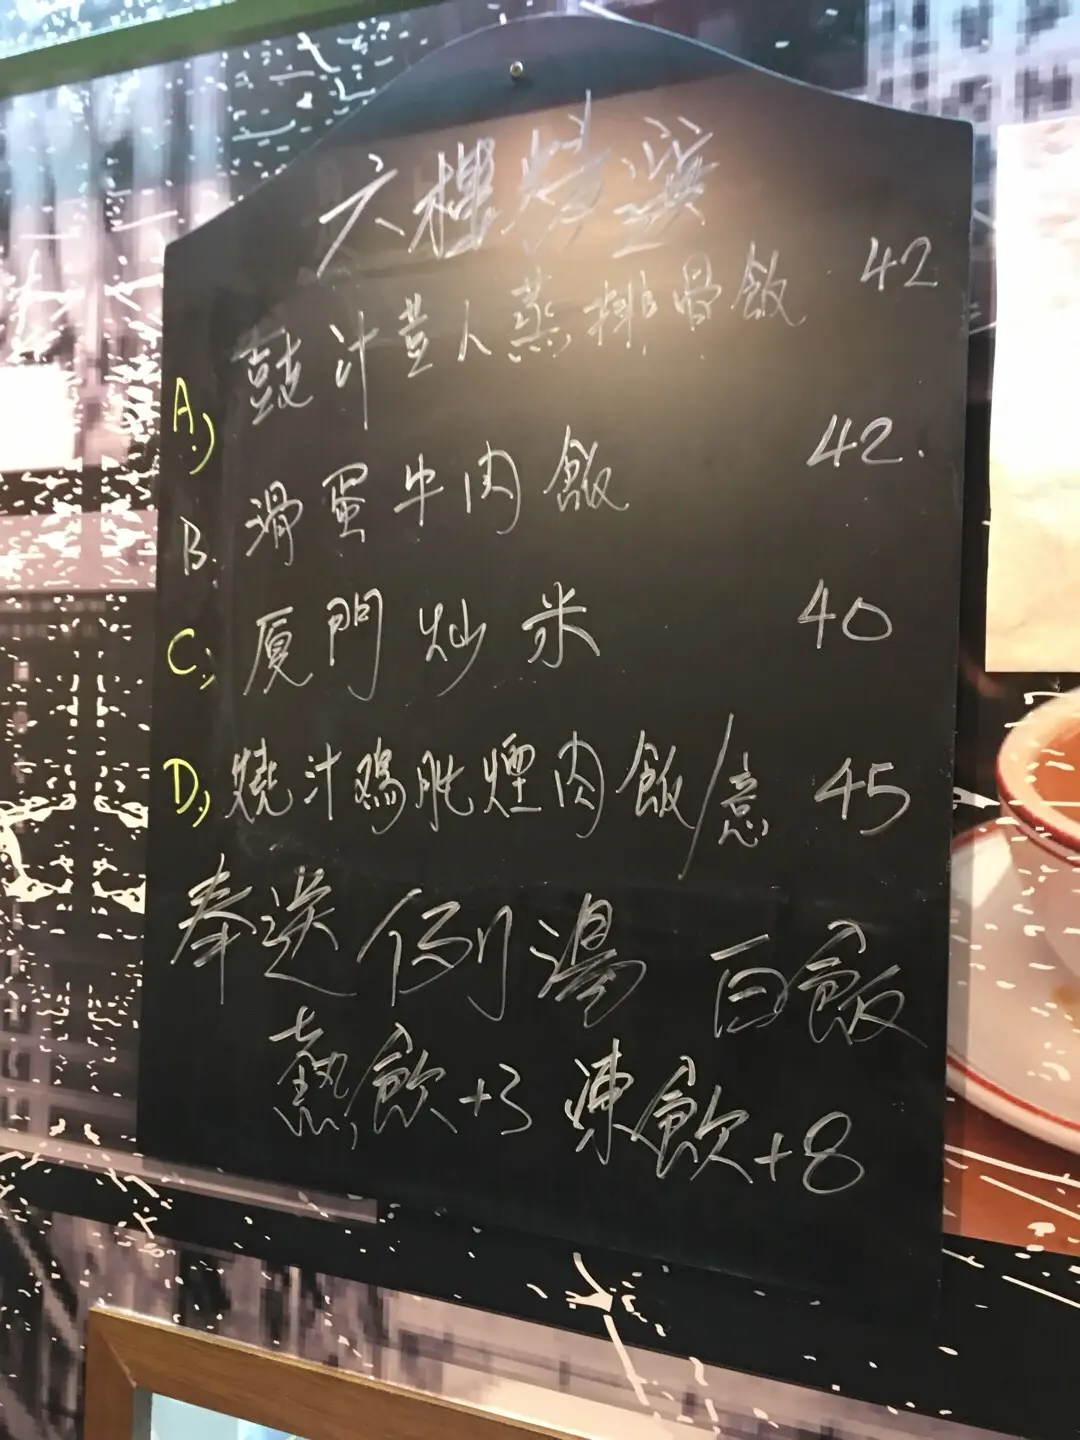 六樓精選
A.) 豉汁豆人蒸排骨飯 42
B. 滑蛋牛肉飯 42.
C., 厦門炒米 40
D., 燒汁鷄肶煙肉飯/意 45
奉送例湯 白飯
熱飲+3 凍飲+8